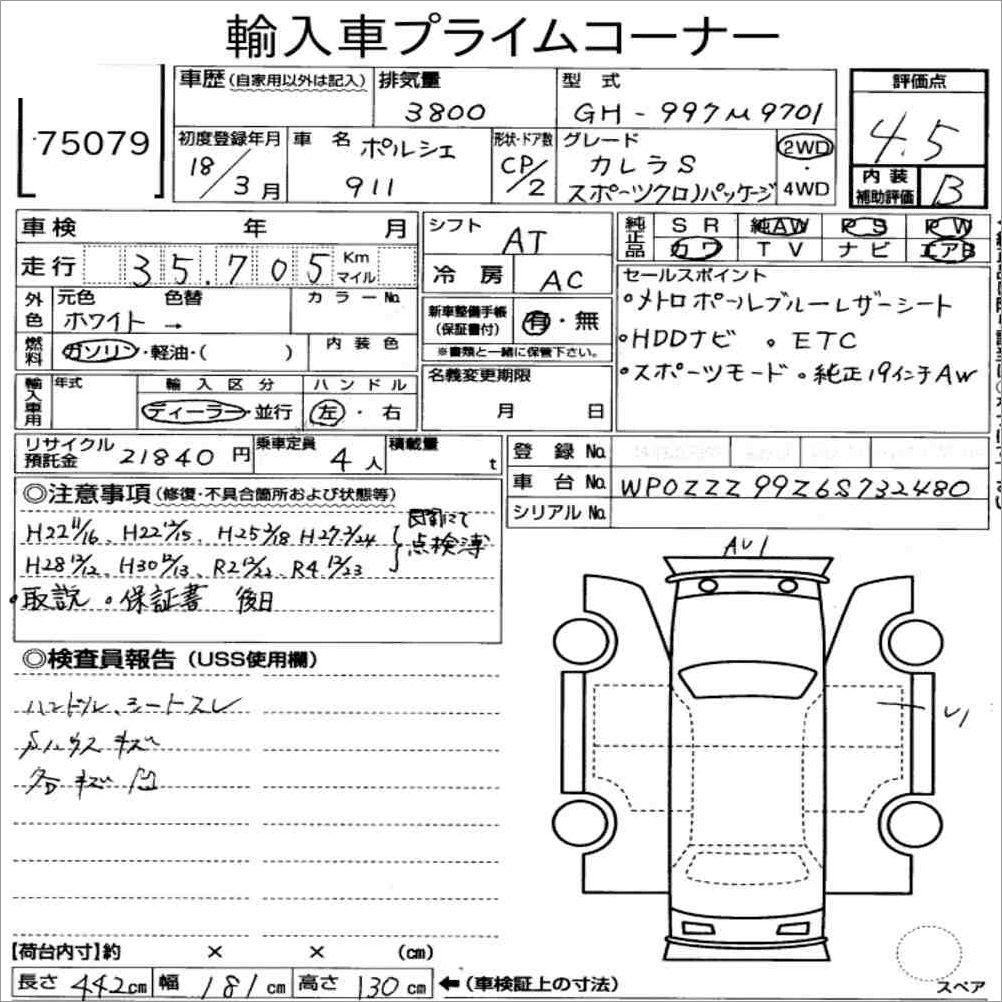 輸入車プライムコーナー
75079
車歴(自家用以外は記入) 排気量 3800 型式 GH-997M9701 評価点 4.5
初度登録年月 18/3月 車名 ポルシェ 911 形状・ドア数 CP/2 グレード カレラS スポーツクロノパッケージ 2WD・4WD 内装補助評価 B
車検 年 月 シフト AT 純正品 SR 純AW PS PW
走行 35,705 Km マイル 冷房 AC カワ TV ナビ エアB
外色 元色 ホワイト → 色替 カラーNo. 新車整備手帳(保証書付) 有・無
セールスポイント
・メトロポールブルーレザーシート
・HDDナビ ・ETC
・スポーツモード ・純正19インチAW
燃料 ガソリン・軽油・( ) 内装色 ※書類と一緒に保管下さい。
輸入車用 年式 輸入区分 ディーラー・並行 ハンドル 左・右 名義変更期限 月 日
リサイクル預託金 21840円 乗車定員 4人 積載量 t 登録No.
車台No. WP0ZZZ99Z6S732480
シリアルNo.
◎注意事項(修復・不具合箇所および状態等)
H22 11/16、H22 12/15、H25 2/18 H27 2/24
H28 12/12、H30 12/13、R2 12/22、R4 12/23
点検簿
・取説 ・保証書 後日
◎検査員報告(USS使用欄)
ハンドル、シートスレ
キズ
各キズ 凹
AU1
U1
【荷台内寸】約 × × (cm)
長さ 442cm 幅 181cm 高さ 130cm ←(車検証上の寸法)
スペア